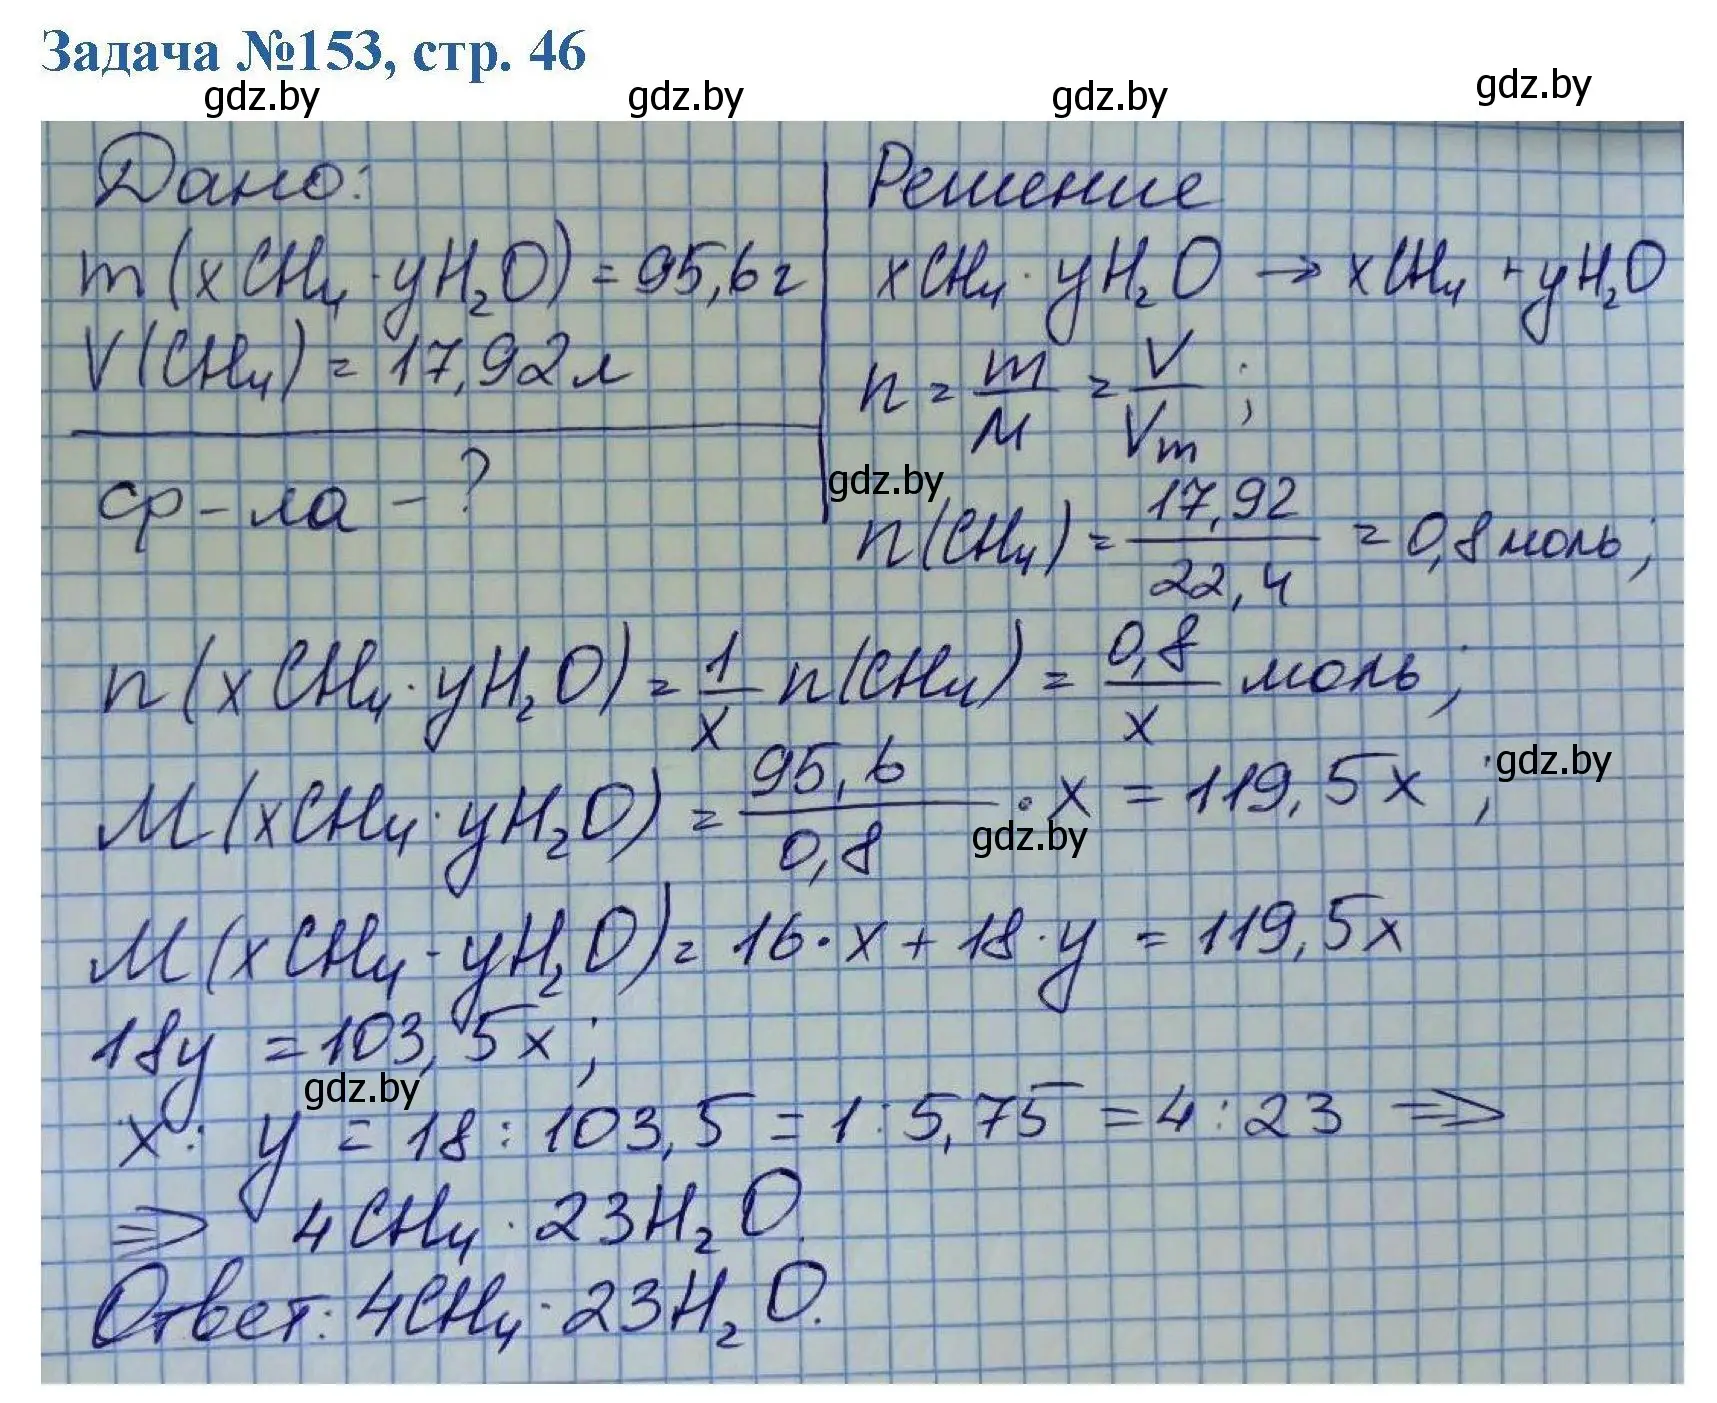 Задача №153, стр. 46
gdz.by gdz.by gdz.by gdz.by
Дано:
m(xCH₄·yH₂O) = 95,6 г
V(CH₄) = 17,92 л
ф-ла - ?
Решение
xCH₄·yH₂O → xCH₄ + yH₂O
n = m/M = V/Vm ;
gdz.by
n(CH₄) = 17,92/22,4 = 0,8 моль;
n(xCH₄·yH₂O) = 1/x n(CH₄) = 0,8/x моль;
gdz.by
M(xCH₄·yH₂O) = 95,6/0,8 · x = 119,5x ;
gdz.by
M(xCH₄·yH₂O) = 16·x + 18·y = 119,5x
18y = 103,5x ;
gdz.by
x : y = 18 : 103,5 = 1 : 5,75 = 4 : 23 ⇒
⇒ 4CH₄·23H₂O.
Ответ: 4CH₄·23H₂O.